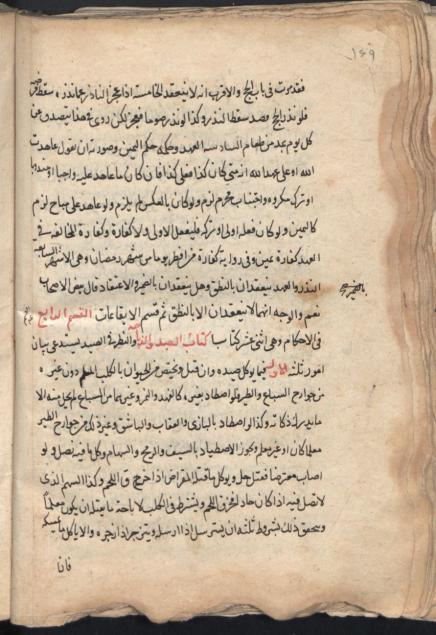 ١٤٩
فقد مرت في باب الحج والاقرب انه لا ينعقد الخامسة اذا عجز الناذر عما نذره سقط فرضه
فلو نذر الحج فصد سقط النذر وكذا لو نذر صوما فعجز لكن روى في هذا يتصدق عن
كل يوم بمد من طعام السادسة العهد وحكمه حكم اليمين وصورته ان يقول عاهدت
الله او على عهد الله انه متى كان كذا فعلي كذا فان كان ما عاهد عليه واجبا او مندوبا
او ترك مكروه او اجتناب محرم لزم ولو كان بالعكس لم يلزم ولو عاهد على مباح لزم
كاليمين ولو كان فعله اولى او تركه فليفعل الاولى ولا كفارة وكفارة المخالفة في
العهد كفارة يمين وفي رواية كفارة من افطر يوما من شهر رمضان وهي الاشهر السابعة
النذر والعهد ينعقدان بالنطق وهل ينعقدان بالضمير والاعتقاد قال بعض الاصحاب
نعم والوجه انهما لا ينعقدان الا بالنطق تم قسم الايقاعات القسم الرابع
في الاحكام وهي اثنى عشر كتابا كتاب الصيد والذباحة والنظر في الصيد يستدعي بيان
امور ثلثة الاول فيما يوكل صيده وان قتل ويختص من الحيوان بالكلب المعلم دون غيره
من جوارح السباع والطير فلو اصطاد بغيره كالفهد والنمر وغيرهما من السباع لم يحل منه الا
ما يدرك ذكاته وكذا لو اصطاد بالبازي والعقاب والباشق وغير ذلك من جوارح الطير
معلما كان او غير معلم ويجوز الاصطياد بالسيف والرمح والسهام وكل ما فيه نصل ولو
اصاب معترضا فقتل حل ويوكل ما قتله المعراض اذا خرق اللحم وكذا السهم الذي
لا نصل فيه اذا كان حادا فخرق اللحم ويشترط في الكلب لاباحة ما يقتله ان يكون معلما
ويتحقق ذلك بشروط ثلثة ان يسترسل اذا ارسله وينزجر اذا زجره والا ياكل ما يمسكه
فان